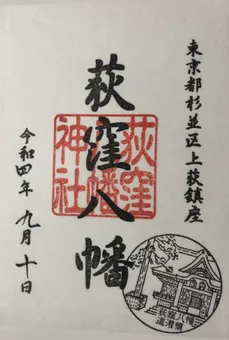 東京都杉並区上荻鎮座
荻窪八幡
荻窪八幡神社
令和四年 九月 十日
荻窪八幡